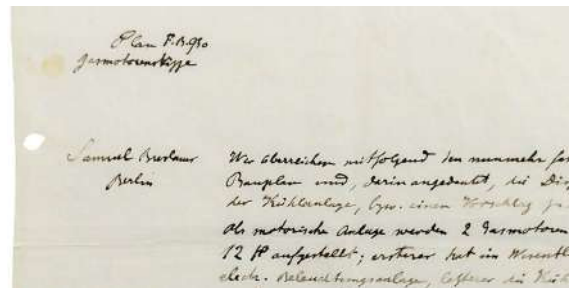 Plan F.B.930
Gasmotorenskizze
Samuel Breslauer
Berlin
Wir überreichen mitfolgend den nunmehr
Bauplan und, darin angedeutet, die
der Kühlanlage, bzw. einen Vorschlag
Als motorische Anlage werden 2 Gasmotoren
12 HP aufgestellt; ersterer hat im
electr. Beleuchtungsanlage, letzterer die